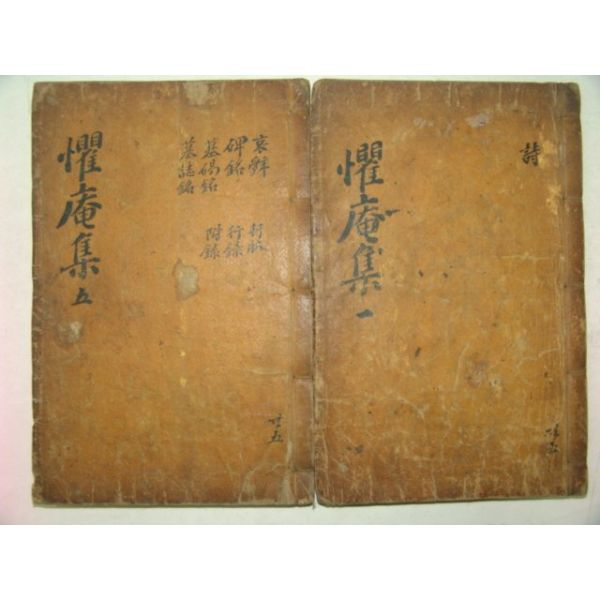 懼庵集 一
詩
共五
懼庵集 五
哀辭 行狀
碑銘 行錄
墓碣銘 附錄
墓誌銘
共五